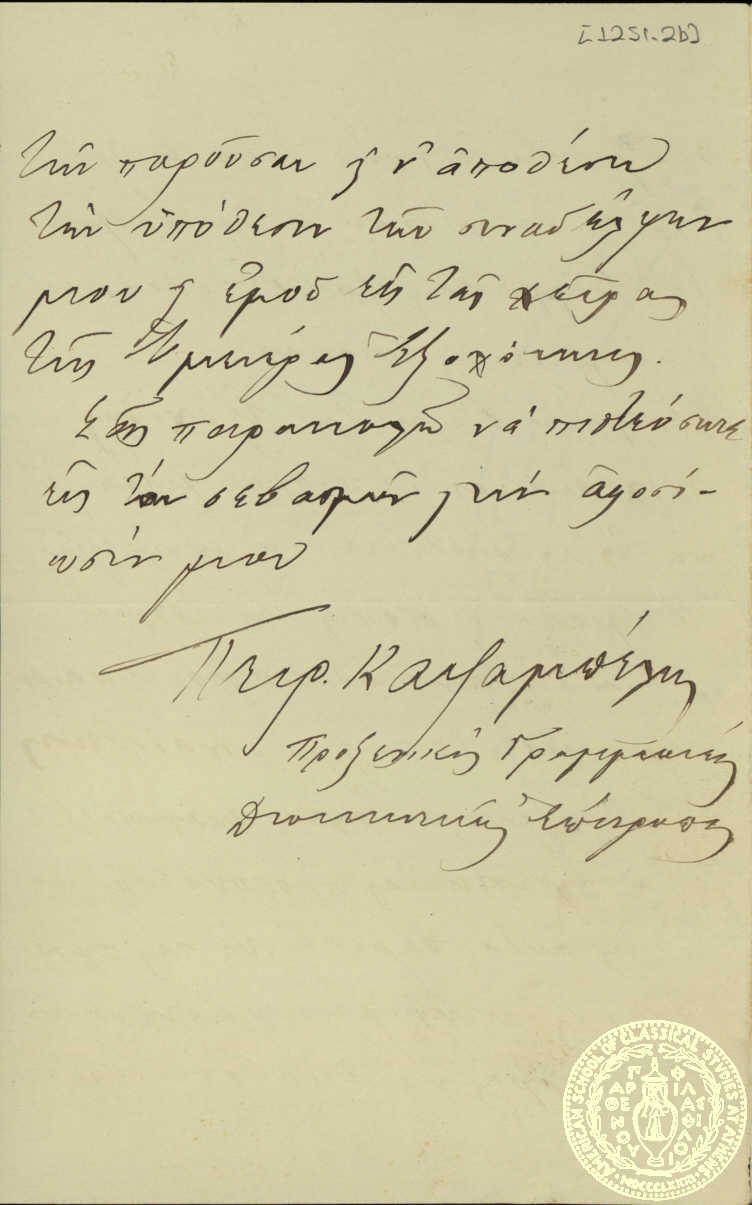 [1251.2b]
τὴν παροῦσαν ἢ ν' ἀποθέσω
τὴν ὑπόθεσιν τῶν συναδέλφων
μου ἢ ἐμοῦ εἰς τὰς χεῖρας
τῆς Ὑμετέρας Ἐξοχότητος.
Σᾶς παρακαλῶ νὰ πιστεύσητε
εἰς τὴν σεβασμίαν μου ἀφοσί-
ωσίν μου
Πετρ. Κατζαμπέλης
Προξενικὸς Γραμματεὺς
Διοικητικὸς Ἐπίτροπος
AMERICAN SCHOOL OF CLASSICAL STUDIES AT ATHENS
ΠΑΡΘΕΝΟΥ ΦΙΛΑΣ ΦΙΛΟΙ
MDCCCLXXXI